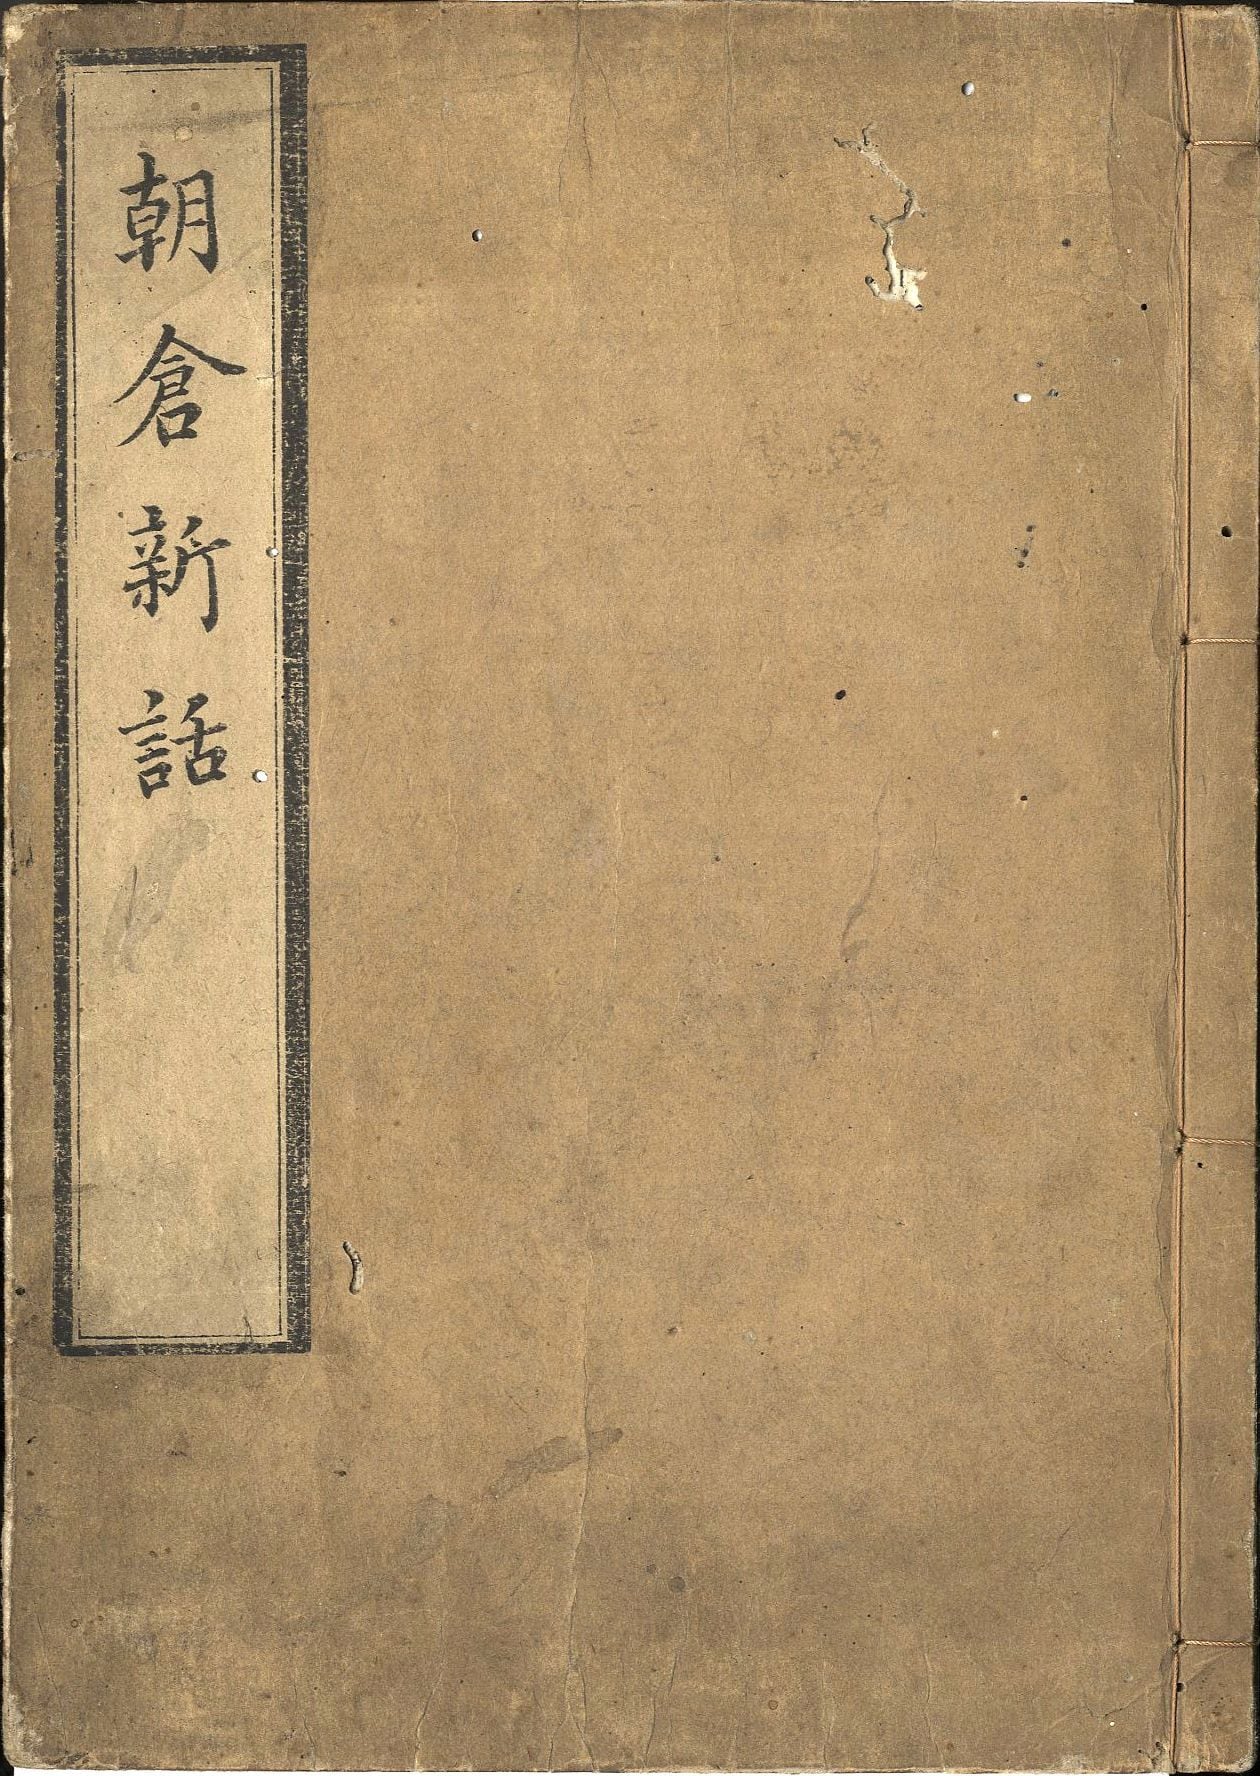 朝倉新話